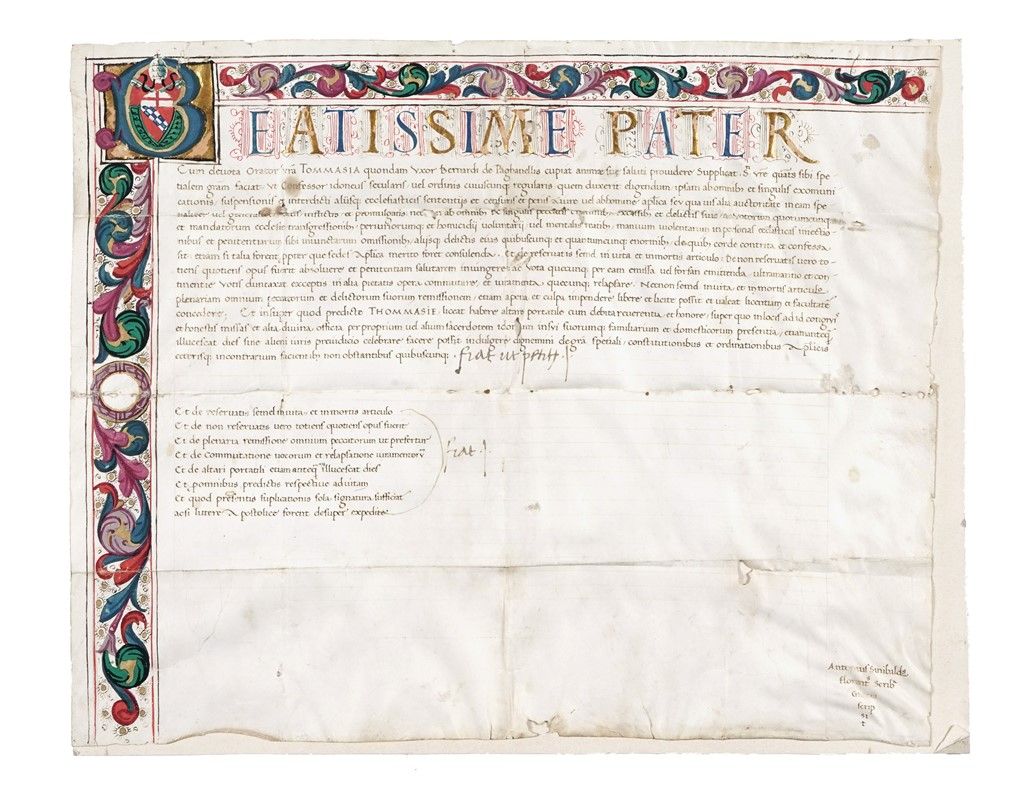 BEATISSIME PATER
Cum deuota Orator vra TOMMASIA quondam Vxor Bernardi de Paghanellis cupiat anime sue saluti prouidere Supplicat S. vre quatis sibi spe
tialem gram faciat Vt Confessor idoneus secularis uel ordinis cuiuscunque regularis quem duxerit eligendum ipsam ab omnibus et singulis excomuni
cationis suspensionis et interdicti alijsque ecclesiasticis sententijs et censuris et penis a iure uel ab homine
et mandatorum ecclesie transgressionibus periuriorumque et homicidij uoluntarij uel mentalis manuum uiolentarum in personas ecclesiasticas iniectio
nibus et penitentiarum sibi iniunctarum omissionibus alijsque delictis suis quibuscunque et quantumcunque enormibus de quibus corde contrita et confessa
sit etiam si talia forent propter que sedes Aplica merito foret consulenda. Et de reservatis semel in uita et in mortis articulo: De non reservatis uero to-
tiens quotiens opus fuerit absoluere et penitentiam salutarem iniungere ac Vota quecunque per eam emissa uel forsan emittenda ultramarino et con-
tinentie Votis duntaxat exceptis in alia pietatis opera commutare et iuramenta quecunque relaxare. Necnon semel in uita et in mortis articulo
plenariam omnium peccatorum et delictorum suorum remissionem etiam a pena et culpa impendere libere et licite possit et ualeat licentiam et facultatem
concedere: Et insuper quod predicte THOMMASIE liceat habere altare portatile cum debita reuerentia et honore super quo in locis ad id congruis
et honestis missas et alia diuina officia per proprium uel alium sacerdotem idoneum in sui suorumque familiarium et domesticorum presentia etiam antequam
illucescat dies sine alieni iuris preiudicio celebrare facere possit indulgere dignemini de gra speciali constitutionibus et ordinationibus Aplicis
ceterisque in contrarium facientibus non obstantibus quibuscunque. fiat ut petitur
Et de reservatis semel in uita et in mortis articulo
Et de non reservatis uero totiens quotiens opus fuerit
Et de plenaria remissione omnium peccatorum ut prefertur
Et de Commutatione uotorum et relaxatione iuramentorum
fiat
Et de altari portatili etiam antequam illucescat dies
Et pomnibus predictis respectiue ad uitam
Et quod presentis suplicationis sola signatura sufficiat
ac si littere Apostolice forent desuper expedite
Antonius Sinibaldus
florent Scrib
scrip
si
t